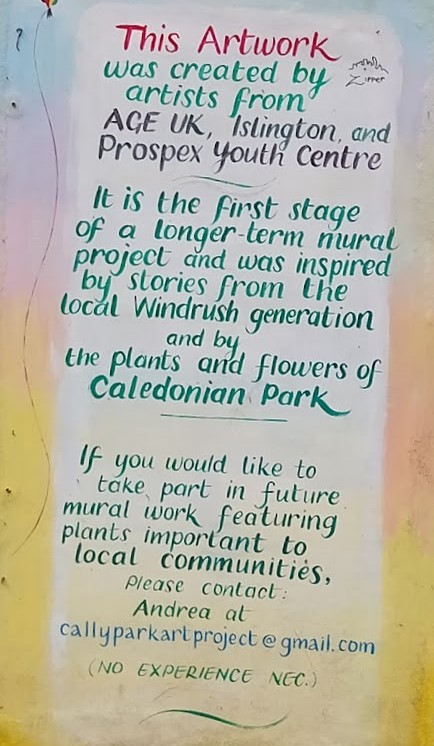 This Artwork
was created by
Zipper
artists from
AGE UK, Islington, and
Prospex Youth Centre
It is the first stage
of a longer-term mural
project and was inspired
by stories from the
local Windrush generation
and by
the plants and flowers of
Caledonian Park
If you would like to
take part in future
mural work featuring
plants important to
local communities,
Please contact:
Andrea at
callyparkartproject@gmail.com
(NO EXPERIENCE NEC.)